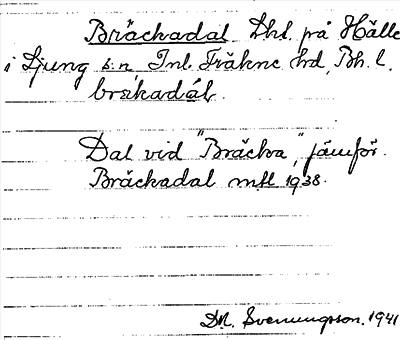 Bräckadal Lht på Hälle
i Ljung s:n, Inl. Fräkne hd, Bh. l.
bräkadál.
Dal vid "Bräcka", jämför
Bräckadal mfl 1938.
D.A. Svenungsson. 1941